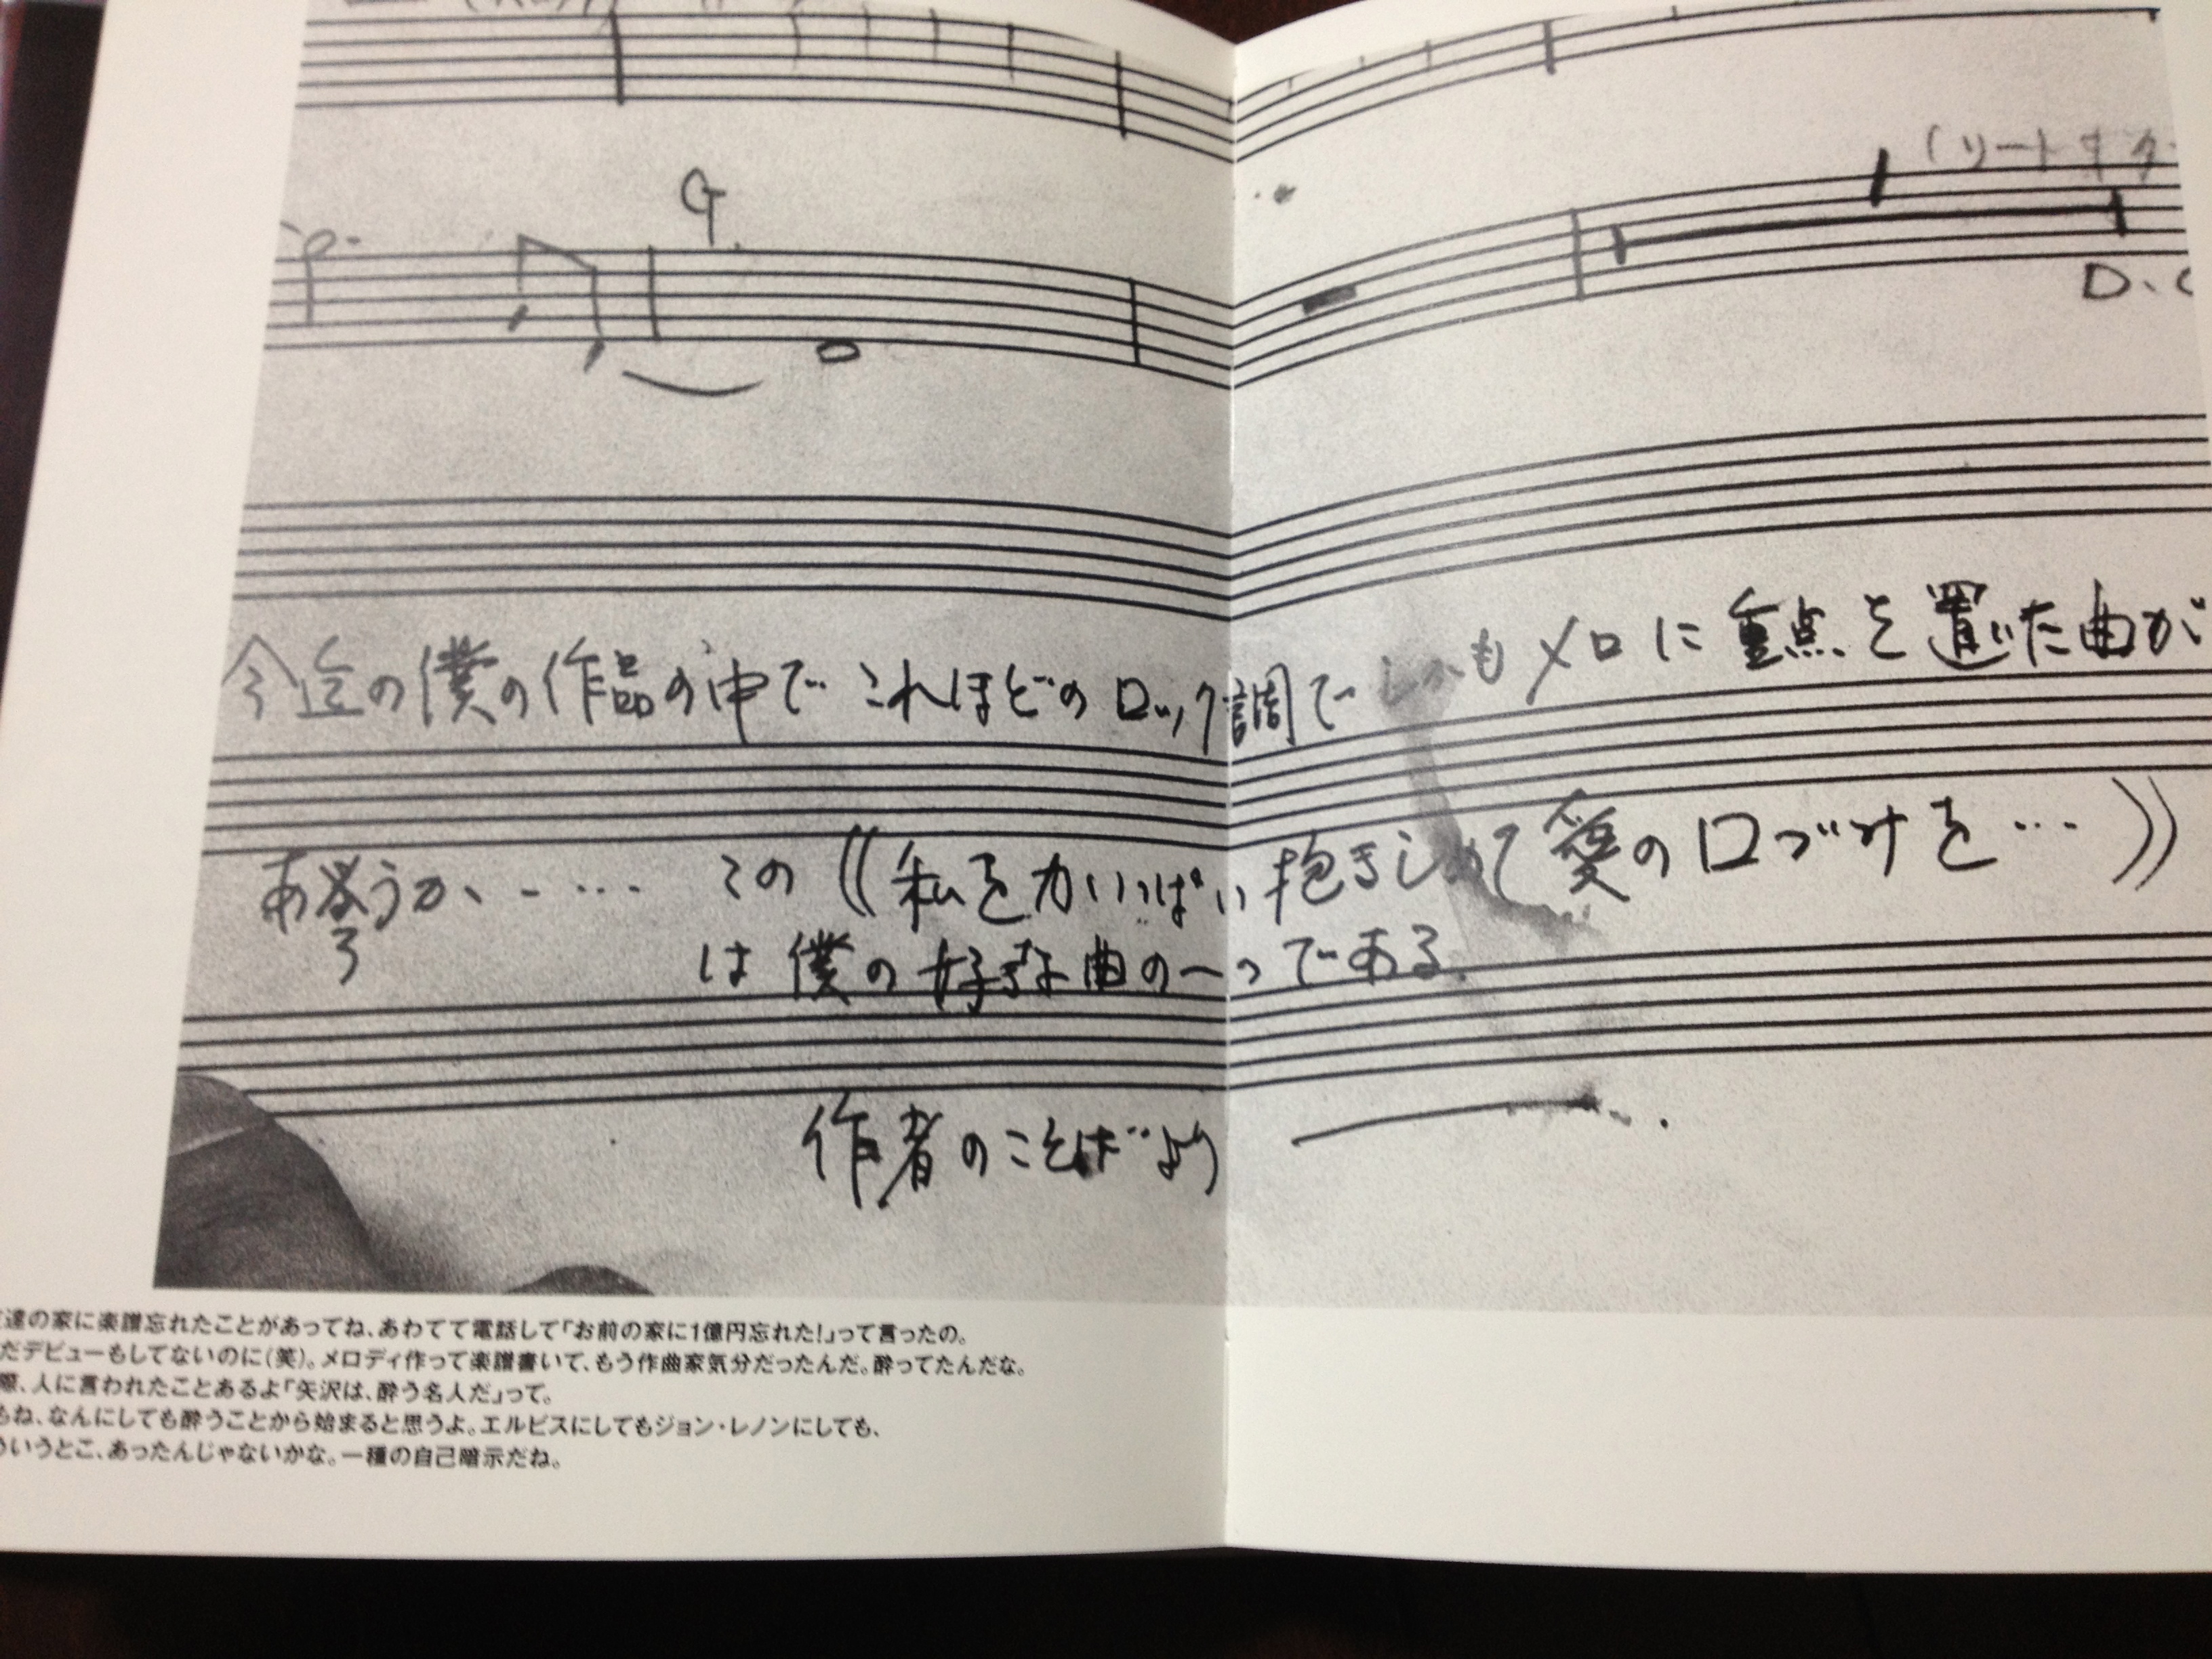 G
(リードギター
D.C
今迄の僕の作品の中で これほどのロック調で しかもメロに重点を置いた曲が
あろうか、‥‥ この((私を力いっぱい抱きしめて愛の口づけを…))
は僕の好きな曲の一つである.
作者のことばより
達の家に楽譜忘れたことがあってね、あわてて電話して「お前の家に1億円忘れた!」って言ったの。
だデビューもしてないのに(笑)。メロディ作って楽譜書いて、もう作曲家気分だったんだ。酔ってたんだな。
際、人に言われたことあるよ「矢沢は、酔う名人だ」って。
もね、なんにしても酔うことから始まると思うよ。エルビスにしてもジョン・レノンにしても、
ういうとこ、あったんじゃないかな。一種の自己暗示だね。